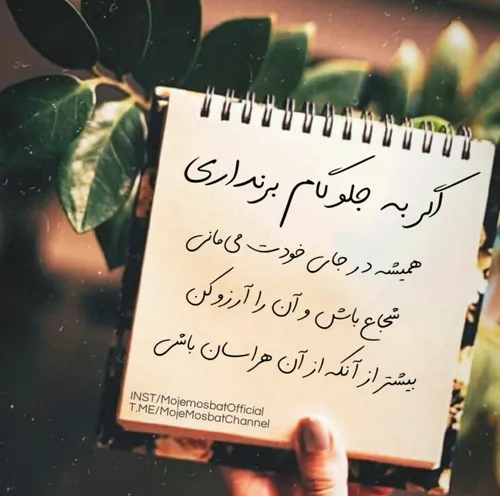 اگر به جلو گام برنداری
همیشه در جای خودت می‌مانی
شجاع باش و آن را آرزو کن
بیشتر از آنکه از آن هراسان باشی
INST/MojemosbatOfficial
T.ME/MojeMosbatChannel